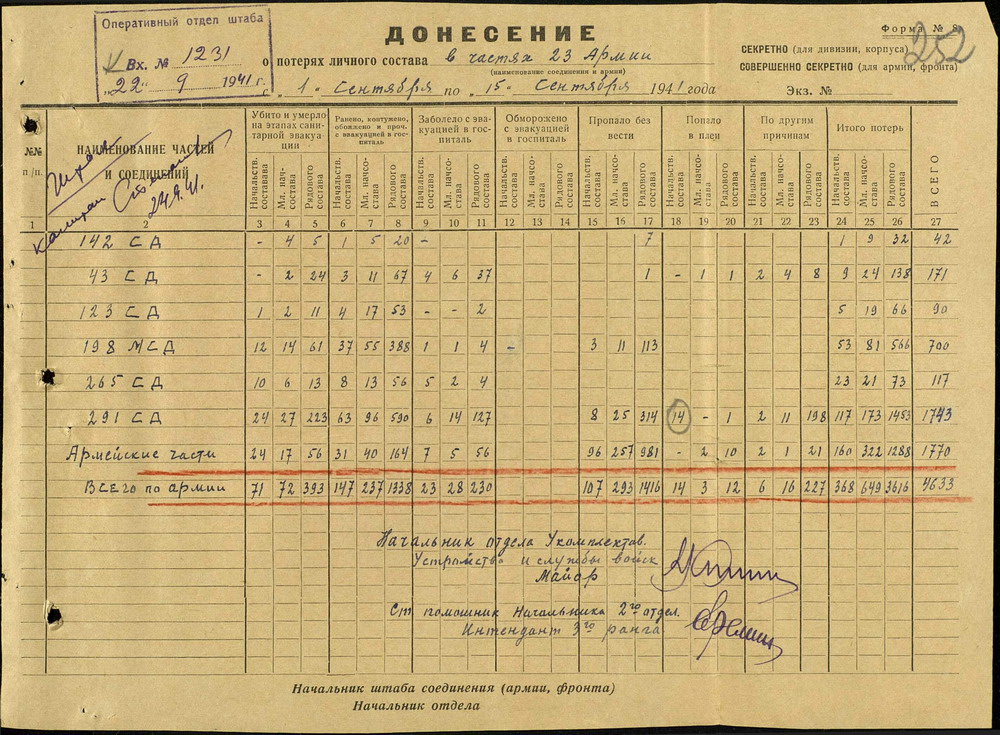 Оперативный отдел штаба
Вх. № 1231
"22" 9 1941 г.
ДОНЕСЕНИЕ
о потерях личного состава в частях 23 Армии
(наименование соединения и армии)
с "1" Сентября по "15" Сентября 1941 года
Форма № 8
252
СЕКРЕТНО (для дивизии, корпуса)
СОВЕРШЕННО СЕКРЕТНО (для армии, фронта)
Экз. №
№№ п/п. НАИМЕНОВАНИЕ ЧАСТЕЙ И СОЕДИНЕНИЙ
Убито и умерло на этапах санитарной эвакуации
Ранено, контужено, обожжено и проч. с эвакуацией в госпиталь
Заболело с эвакуацией в госпиталь
Обморожено с эвакуацией в госпиталь
Пропало без вести
Попало в плен
По другим причинам
Итого потерь
ВСЕГО
Начальств. состава Мл. начсостава Рядового состава
1 2 3 4 5 6 7 8 9 10 11 12 13 14 15 16 17 18 19 20 21 22 23 24 25 26 27
142 СД - 4 5 1 5 20 - 7 1 9 32 42
43 СД - 2 24 3 11 67 4 6 37 1 - 1 1 2 4 8 9 24 138 171
123 СД 1 2 11 4 17 53 - - 2 5 19 66 90
198 МСД 12 14 61 37 55 388 1 1 4 - 3 11 113 53 81 566 700
265 СД 10 6 13 8 13 56 5 2 4 23 21 73 117
291 СД 24 27 223 63 96 590 6 14 127 8 25 314 14 - 1 2 11 198 117 173 1453 1743
Армейские части 24 17 56 31 40 164 7 5 56 96 257 981 - 2 10 2 1 21 160 322 1288 1770
ВСЕГО по армии 71 72 393 147 237 1338 23 28 230 107 293 1416 14 3 12 6 16 227 368 649 3616 4633
Начальник отдела Укомплектов.
Устройства и службы войск
Майор
Ст помошник Начальника 2го отдел.
Интендант 3го ранга
Начальник штаба соединения (армии, фронта)
Начальник отдела